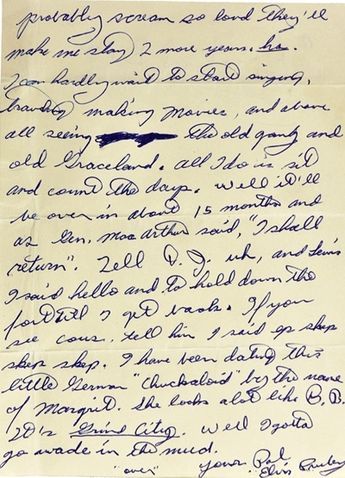 probably scream so loud they'll
make me stay 2 more years. ha.
I can hardly wait to start singing,
traveling making Movies, and above
all seeing the old gang and
old Graceland. all I do is sit
and count the days. Well it'll
be over in about 15 months and
as Gen. Mac Arthur said, "I shall
return". Tell D. J. uh, and Lewis
I said hello and to hold down the
fort till I get back. If you
see cous. tell him I said ep skep
skep skep. I have been dating this
little German "Chuckaloid" by the name
of Margrit. She looks alot like B.B.
It's Grind City. Well I gotta
go wade in the mud.
"over" Yours Pal
Elvis Presley